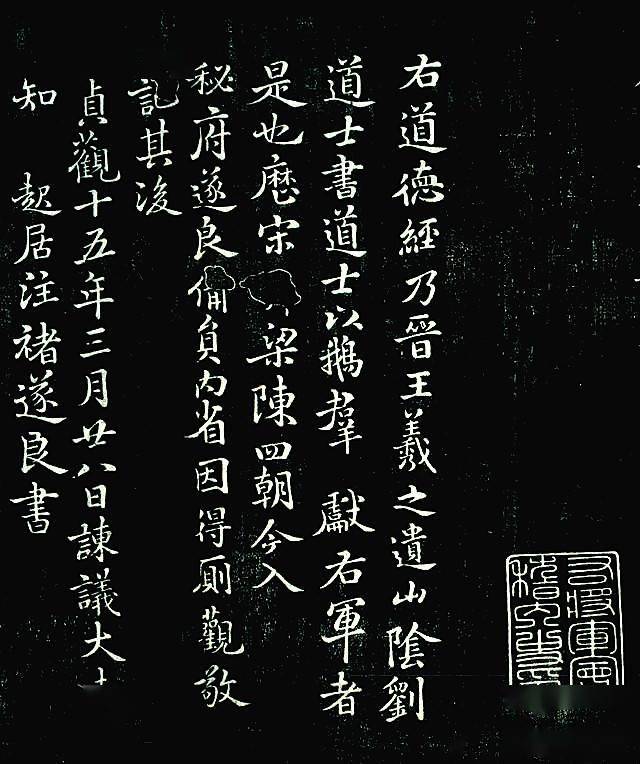 右道徳經乃晉王羲之遺山陰劉
道士書道士以鵝羣 獻右軍者
是也厯宋 梁陳四朝今入
秘府遂良備員內省因得厠觀敬
記其後
貞觀十五年三月廿八日諫議大
知 起居注褚遂良書
右將軍會